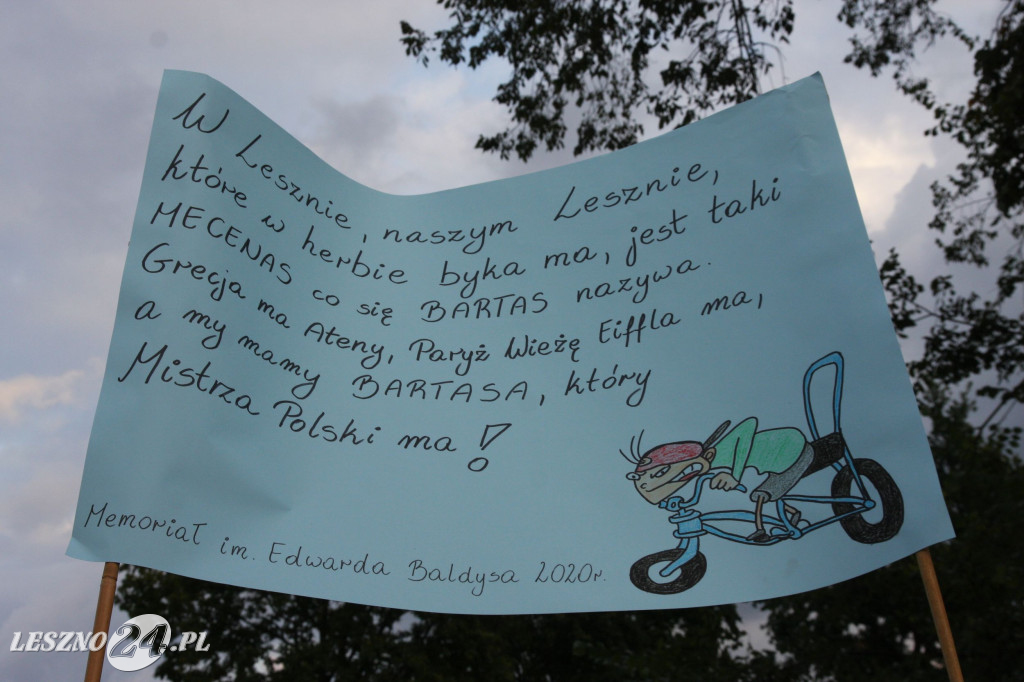 W Lesznie, naszym Lesznie,
które w herbie byka ma, jest taki
MECENAS co się BARTAS nazywa.
Grecja ma Ateny, Paryż Wieżę Eiffla ma,
a my mamy BARTASA, który
Mistrza Polski ma!
Memoriał im. Edwarda Baldysa 2020r.
LESZNO24.PL